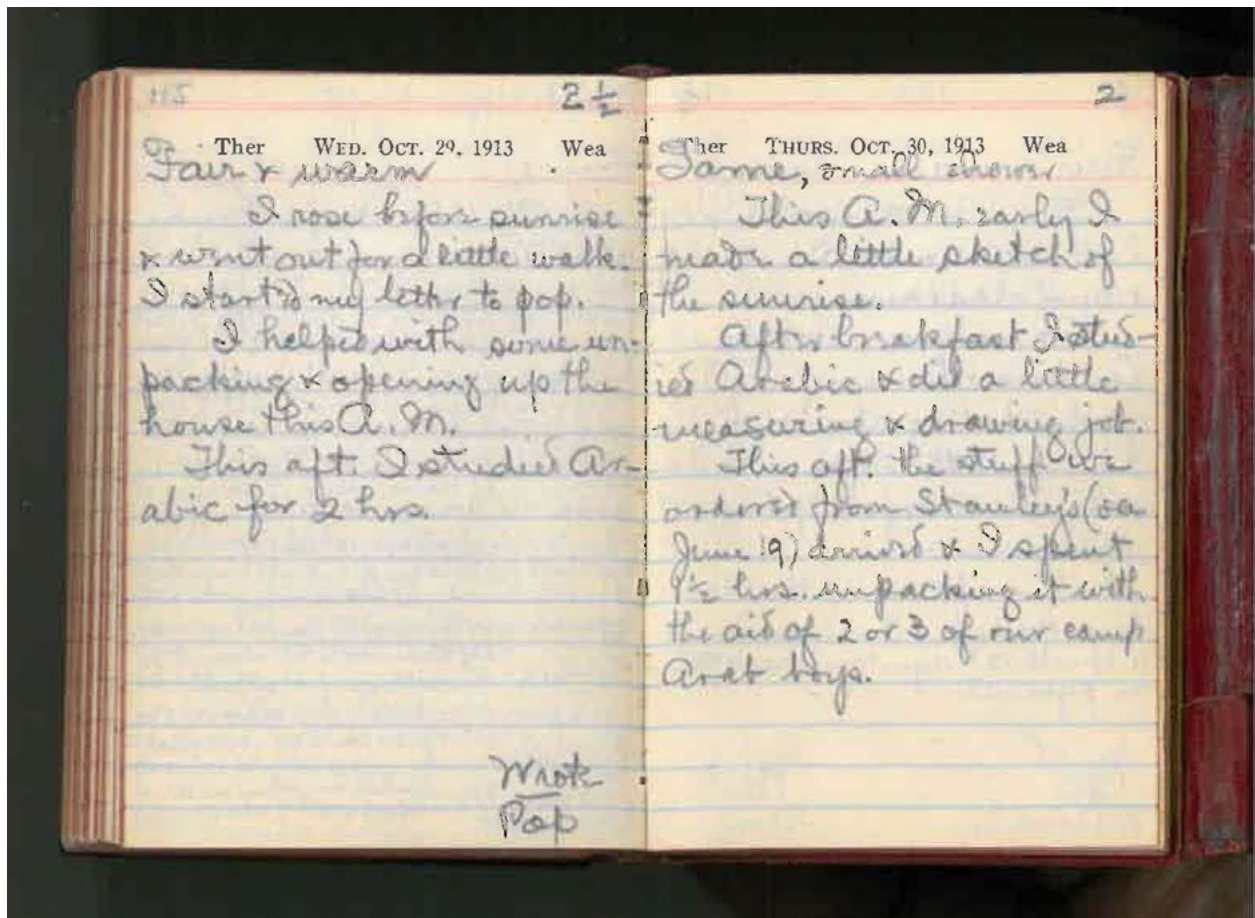 115 2 1/2
Ther WED. OCT. 29, 1913 Wea
Fair & warm
I rose before sunrise
& went out for a little walk.
I started my letter to pop.
I helped with some un-
packing & opening up the
house this A.M.
This aft. I studied Ar-
abic for 2 hrs.
Wrote
Pop
2
Ther THURS. OCT. 30, 1913 Wea
Same, small shower
This A.M. early I
made a little sketch of
the sunrise.
After breakfast I stud-
ied Arabic & did a little
measuring & drawing job.
This aft. the stuff we
ordered from Stanley's (
June 19) arrived & I spent
1 1/2 hrs. unpacking it with
the aid of 2 or 3 of our camp
Arab boys.